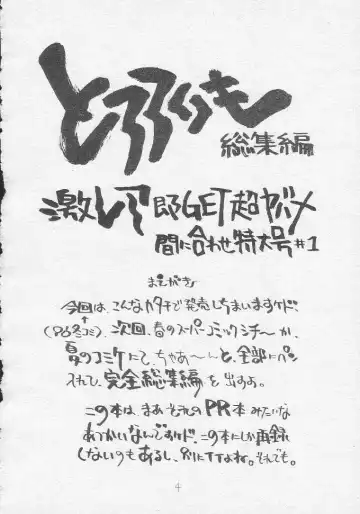 とろろいも
総集編
激レア即GET超ヤバメ
間に合わせ特大号#1
まえがき
今回は、こんなカタチで発売しちまいますケド、
(96冬コミ)次回、春のスーパーコミックシティーか、
夏のコミケにて、ちゃあ〜んと、全部にペン
入れて、完全総集編を出すよ。
この本は、まあそれのPR本みたいな
あつかいなんですケド、この本にしか再録
しないのもあるし、別にイイよね。それでも。
4